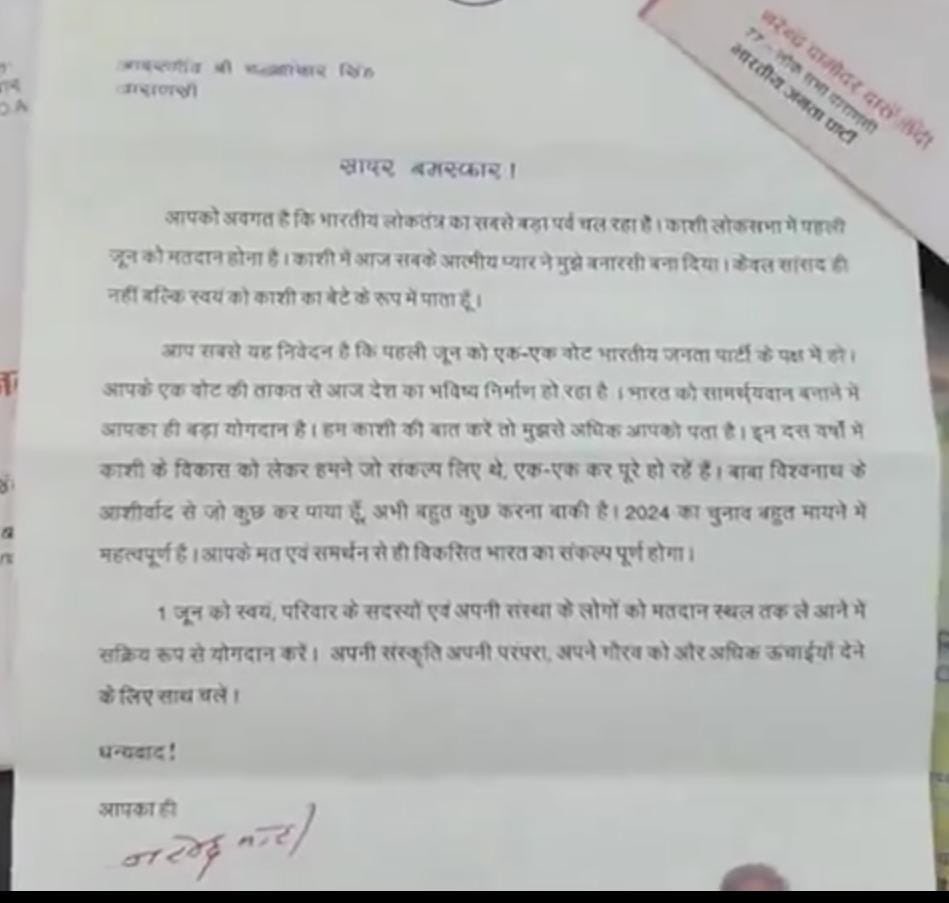 आदरणीय श्री सिंह
वाराणसी
नरेन्द्र दामोदर दास मोदी
77 - लोक सभा वाराणसी
भारतीय जनता पार्टी
सादर नमस्कार !
आपको अवगत है कि भारतीय लोकतंत्र का सबसे बड़ा पर्व चल रहा है। काशी लोकसभा में पहली
जून को मतदान होना है। काशी में आज सबके आत्मीय प्यार ने मुझे बनारसी बना दिया। केवल सांसद ही
नहीं बल्कि स्वयं को काशी का बेटे के रूप में पाता हूँ।
आप सबसे यह निवेदन है कि पहली जून को एक-एक वोट भारतीय जनता पार्टी के पक्ष में हो।
आपके एक वोट की ताकत से आज देश का भविष्य निर्माण हो रहा है। भारत को सामर्थ्यवान बनाने में
आपका ही बड़ा योगदान है। हम काशी की बात करें तो मुझसे अधिक आपको पता है। इन दस वर्षों में
काशी के विकास को लेकर हमने जो संकल्प लिए थे, एक-एक कर पूरे हो रहें हैं। बाबा विश्वनाथ के
आशीर्वाद से जो कुछ कर पाया हूँ, अभी बहुत कुछ करना बाकी है। 2024 का चुनाव बहुत मायने में
महत्वपूर्ण है। आपके मत एवं समर्थन से ही विकसित भारत का संकल्प पूर्ण होगा।
1 जून को स्वयं, परिवार के सदस्यों एवं अपनी संस्था के लोगों को मतदान स्थल तक ले आने में
सक्रिय रूप से योगदान करें। अपनी संस्कृति अपनी परंपरा, अपने गौरव को और अधिक ऊंचाईयाँ देने
के लिए साथ चलें।
धन्यवाद!
आपका ही
नरेन्द्र मोदी